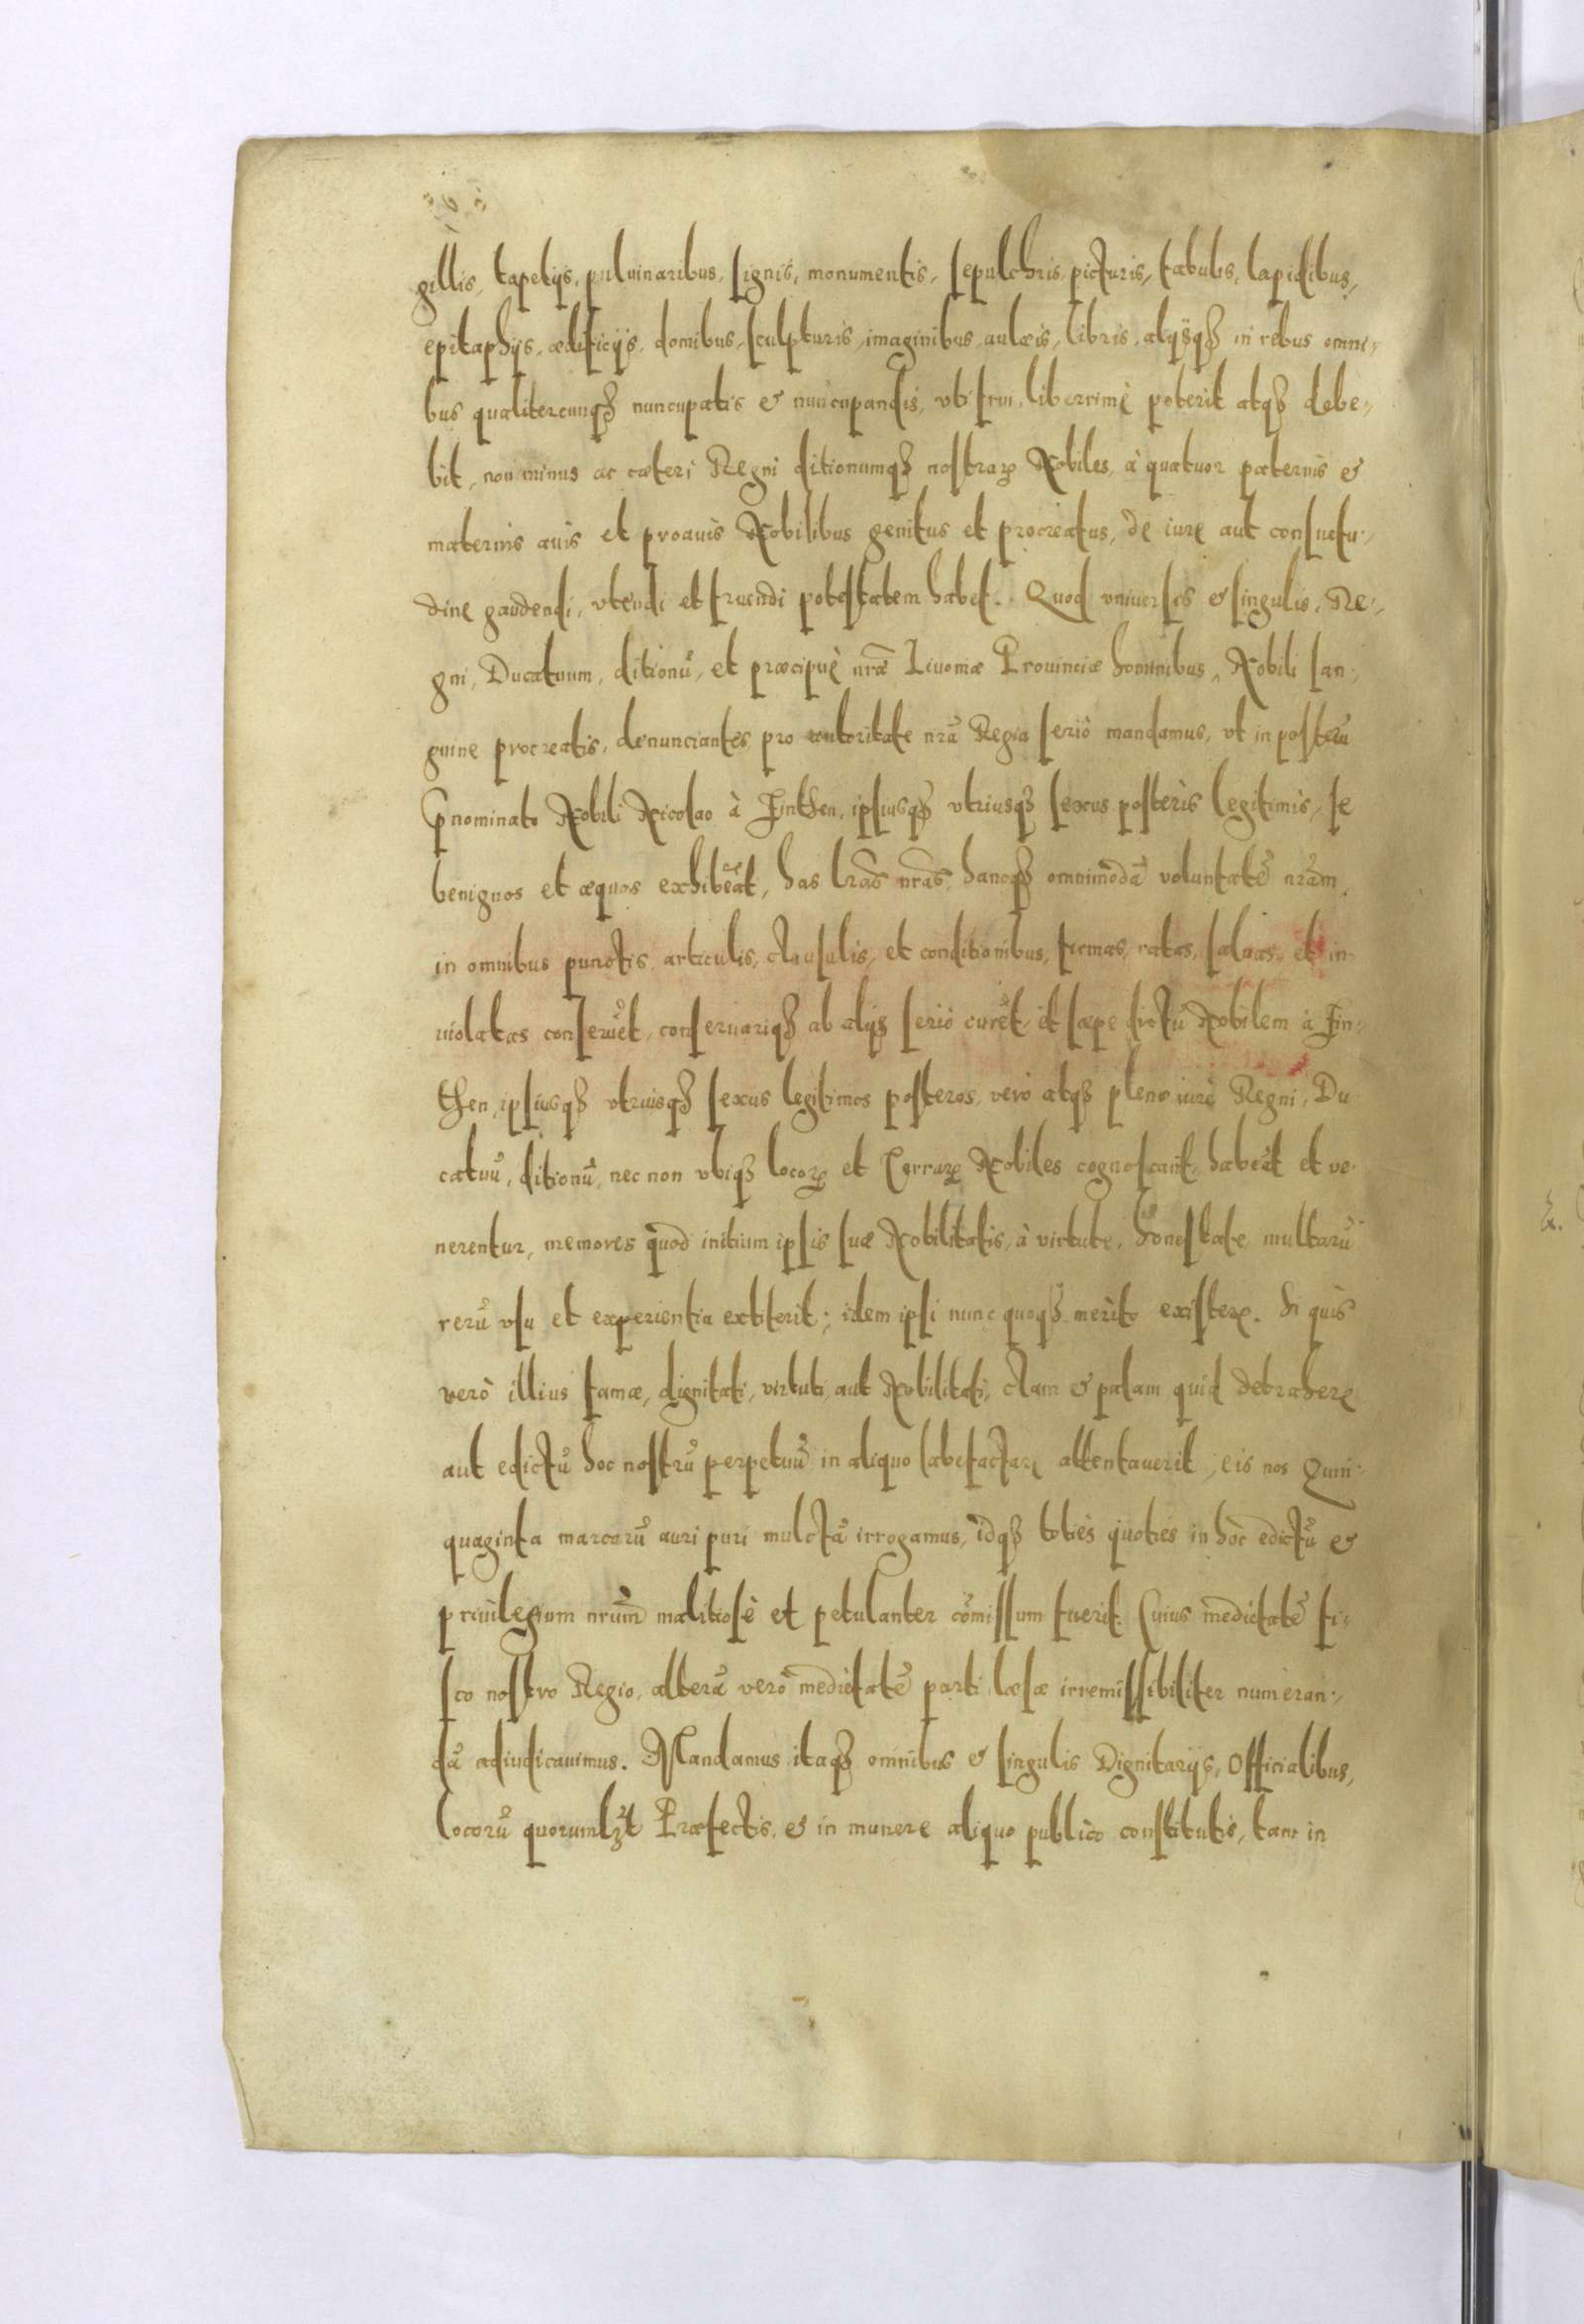 gillis, tapetijs, puluinaribus, signis, monumentis, sepulchris, picturis, tabulis, lapidibus,
epitaphijs, ædificijs, domibus, sculpturis, imaginibus, aulæis, libris, alijsqꝫ in rebus omni-
bus qualitercunqꝫ nuncupatis & nuncupandis, vti frui, liberrimè poterit atqꝫ debe-
bit, non minus ac cæteri Regni ditionumqꝫ nostraꝝ Nobiles, à quatuor paternis &
maternis auis et proauis Nobilibus genitus et procreatus, de iure aut consuetu-
dine gaudendi, vtendi et fruendi potestatem habet. Quod vniuersis & singulis, Re-
gni, Ducatuum, ditionū, et præcipuè nr̄æ Liuoniæ Prouinciæ hominibus, Nobili san-
guine procreatis, denunciantes pro autoritate nr̄a Regia seriò mandamus, vt in posterū
p̄nominato Nobili Nicolao à Finthen, ipsiusqꝫ vtriusqꝫ sexus posteris legitimis, se
benignos et æquos exhibeāt, has lr̄as nr̄as, hancqꝫ omnimodā voluntatē nr̄am
in omnibus punctis, articulis, clausulis, et conditionibus, firmas, ratas, saluas, et in-
uiolatas conseruēt, conseruariqꝫ ab alijs seriò curēt, et sæpe dictū Nobilem à Fin-
then, ipsiusqꝫ vtriusqꝫ sexus legitimos posteros, vero atqꝫ pleno iure Regni, Du-
catuū, ditionū, nec non vbiqꝫ locoꝝ et Terraꝝ Nobiles cognoscant, habeāt et ve-
nerentur, memores quod initium ipsis suæ Nobilitatis, à virtute, honestate, multarū
rerū vsu et experientia extiterit; idem ipsi nunc quoqꝫ merito existere. Si quis
verò illius famæ, dignitati, virtuti, aut Nobilitati, clam & palam quid detrahere
aut edictū hoc nostrū perpetuū in aliquo labefactare attentauerit, eis nos Quin-
quaginta marcarū auri puri mulctā irrogamus, idqꝫ toties quoties in hoc edictū &
priuilegium nr̄um malitiosè et petulanter cōmissum fuerit. Cuius medietatē fi-
sco nostro Regio, alterā verò medietatē parti læsæ irremissibiliter numeran-
dā adiudicauimus. Mandamus itaqꝫ omnibus & singulis Dignitarijs, Officialibus,
locorū quorumlꝫt Præfectis, & in munere aliquo publico constitutis, tam in